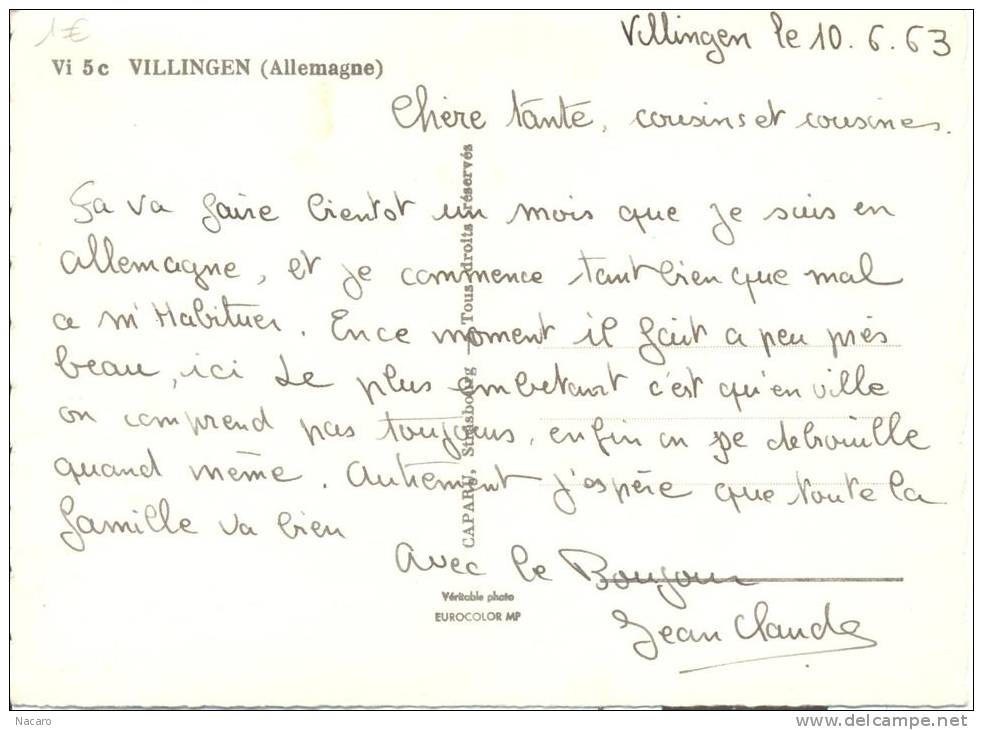 1€
Villingen le 10.6.63
Vi 5c VILLINGEN (Allemagne)
Chère tante, cousins et cousines.
Ça va faire bientot un mois que je suis en
allemagne, et je commence tant bien que mal
a m'Habituer. En ce moment il fait a peu près
beau, ici Le plus embetant c'est qu'en ville
on comprend pas toujours, enfin on se debrouille
quand même. Autrement j'espère que toute la
famille va bien
avec le Bonjour
Jean Claude
CAPARU, Strasbourg — Tous droits réservés
Véritable photo
EUROCOLOR MP
Nacaro
www.delcampe.net